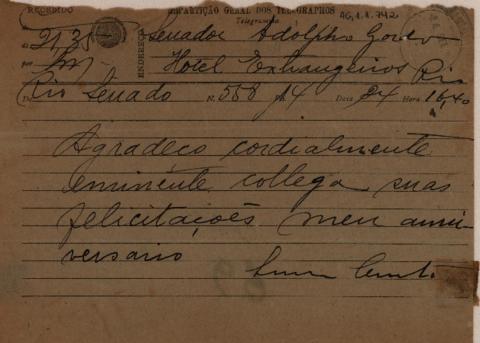 RECEBIDO
REPARTIÇÃO GERAL DOS TELEGRAPHOS
AG,1.1.742
Telegramma
ENDEREÇO
Senador Adolpho Gordo
21,35
Hotel Extrangeiros Rio
De Rio Senado N. 558 Pls. 14 Data 24 Hora 16,40
Agradeço cordialmente
eminente collega suas
felicitações meu anni-
versario